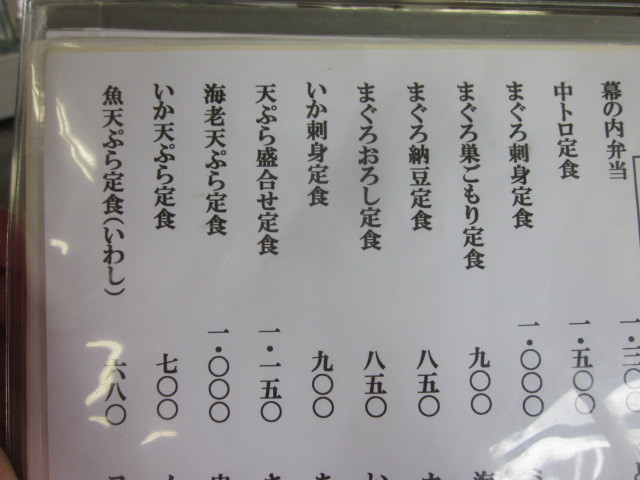 幕の内弁当
中トロ定食 一・五〇〇
まぐろ刺身定食 一・〇〇〇
まぐろ巣ごもり定食 九〇〇
まぐろ納豆定食 八五〇
まぐろおろし定食 八五〇
いか刺身定食 九〇〇
天ぷら盛合せ定食 一・一五〇
海老天ぷら定食 一・〇〇〇
いか天ぷら定食 七〇〇
魚天ぷら定食(いわし) 六八〇